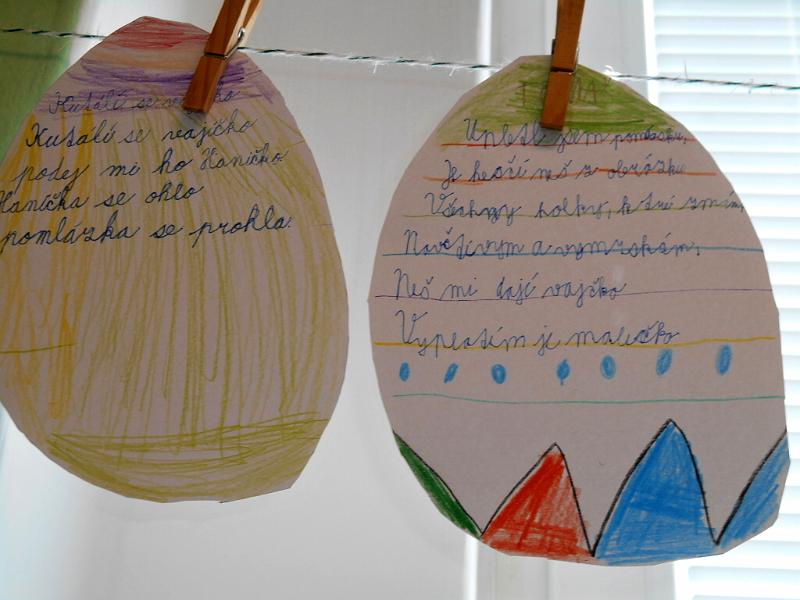 Kutálí se
Kutálí se vajíčko
podej mi ho Haničko
Hanička se ohlo
pomlázka se prohla.
TOM
Upletl jsem pomlázku,
Je hezčí než z obrázku
Všechny holky, k teré znám,
Navštívym a vymrskám,
Než mi dají vajíčko
Vyplatím je maličko